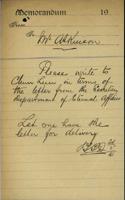 Memorandum 19
From
To Mr Atkinson
Please write to
in terms of
the letter from the Secretary
Department of Internal Affairs
Let me have the
letter for delivery